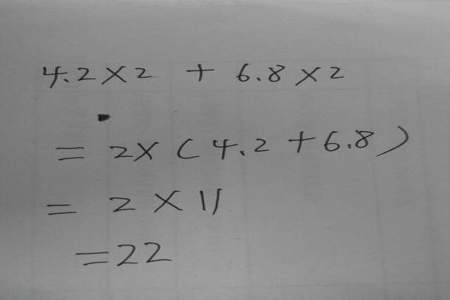 4.2×2 + 6.8×2
= 2×(4.2+6.8)
= 2×11
=22